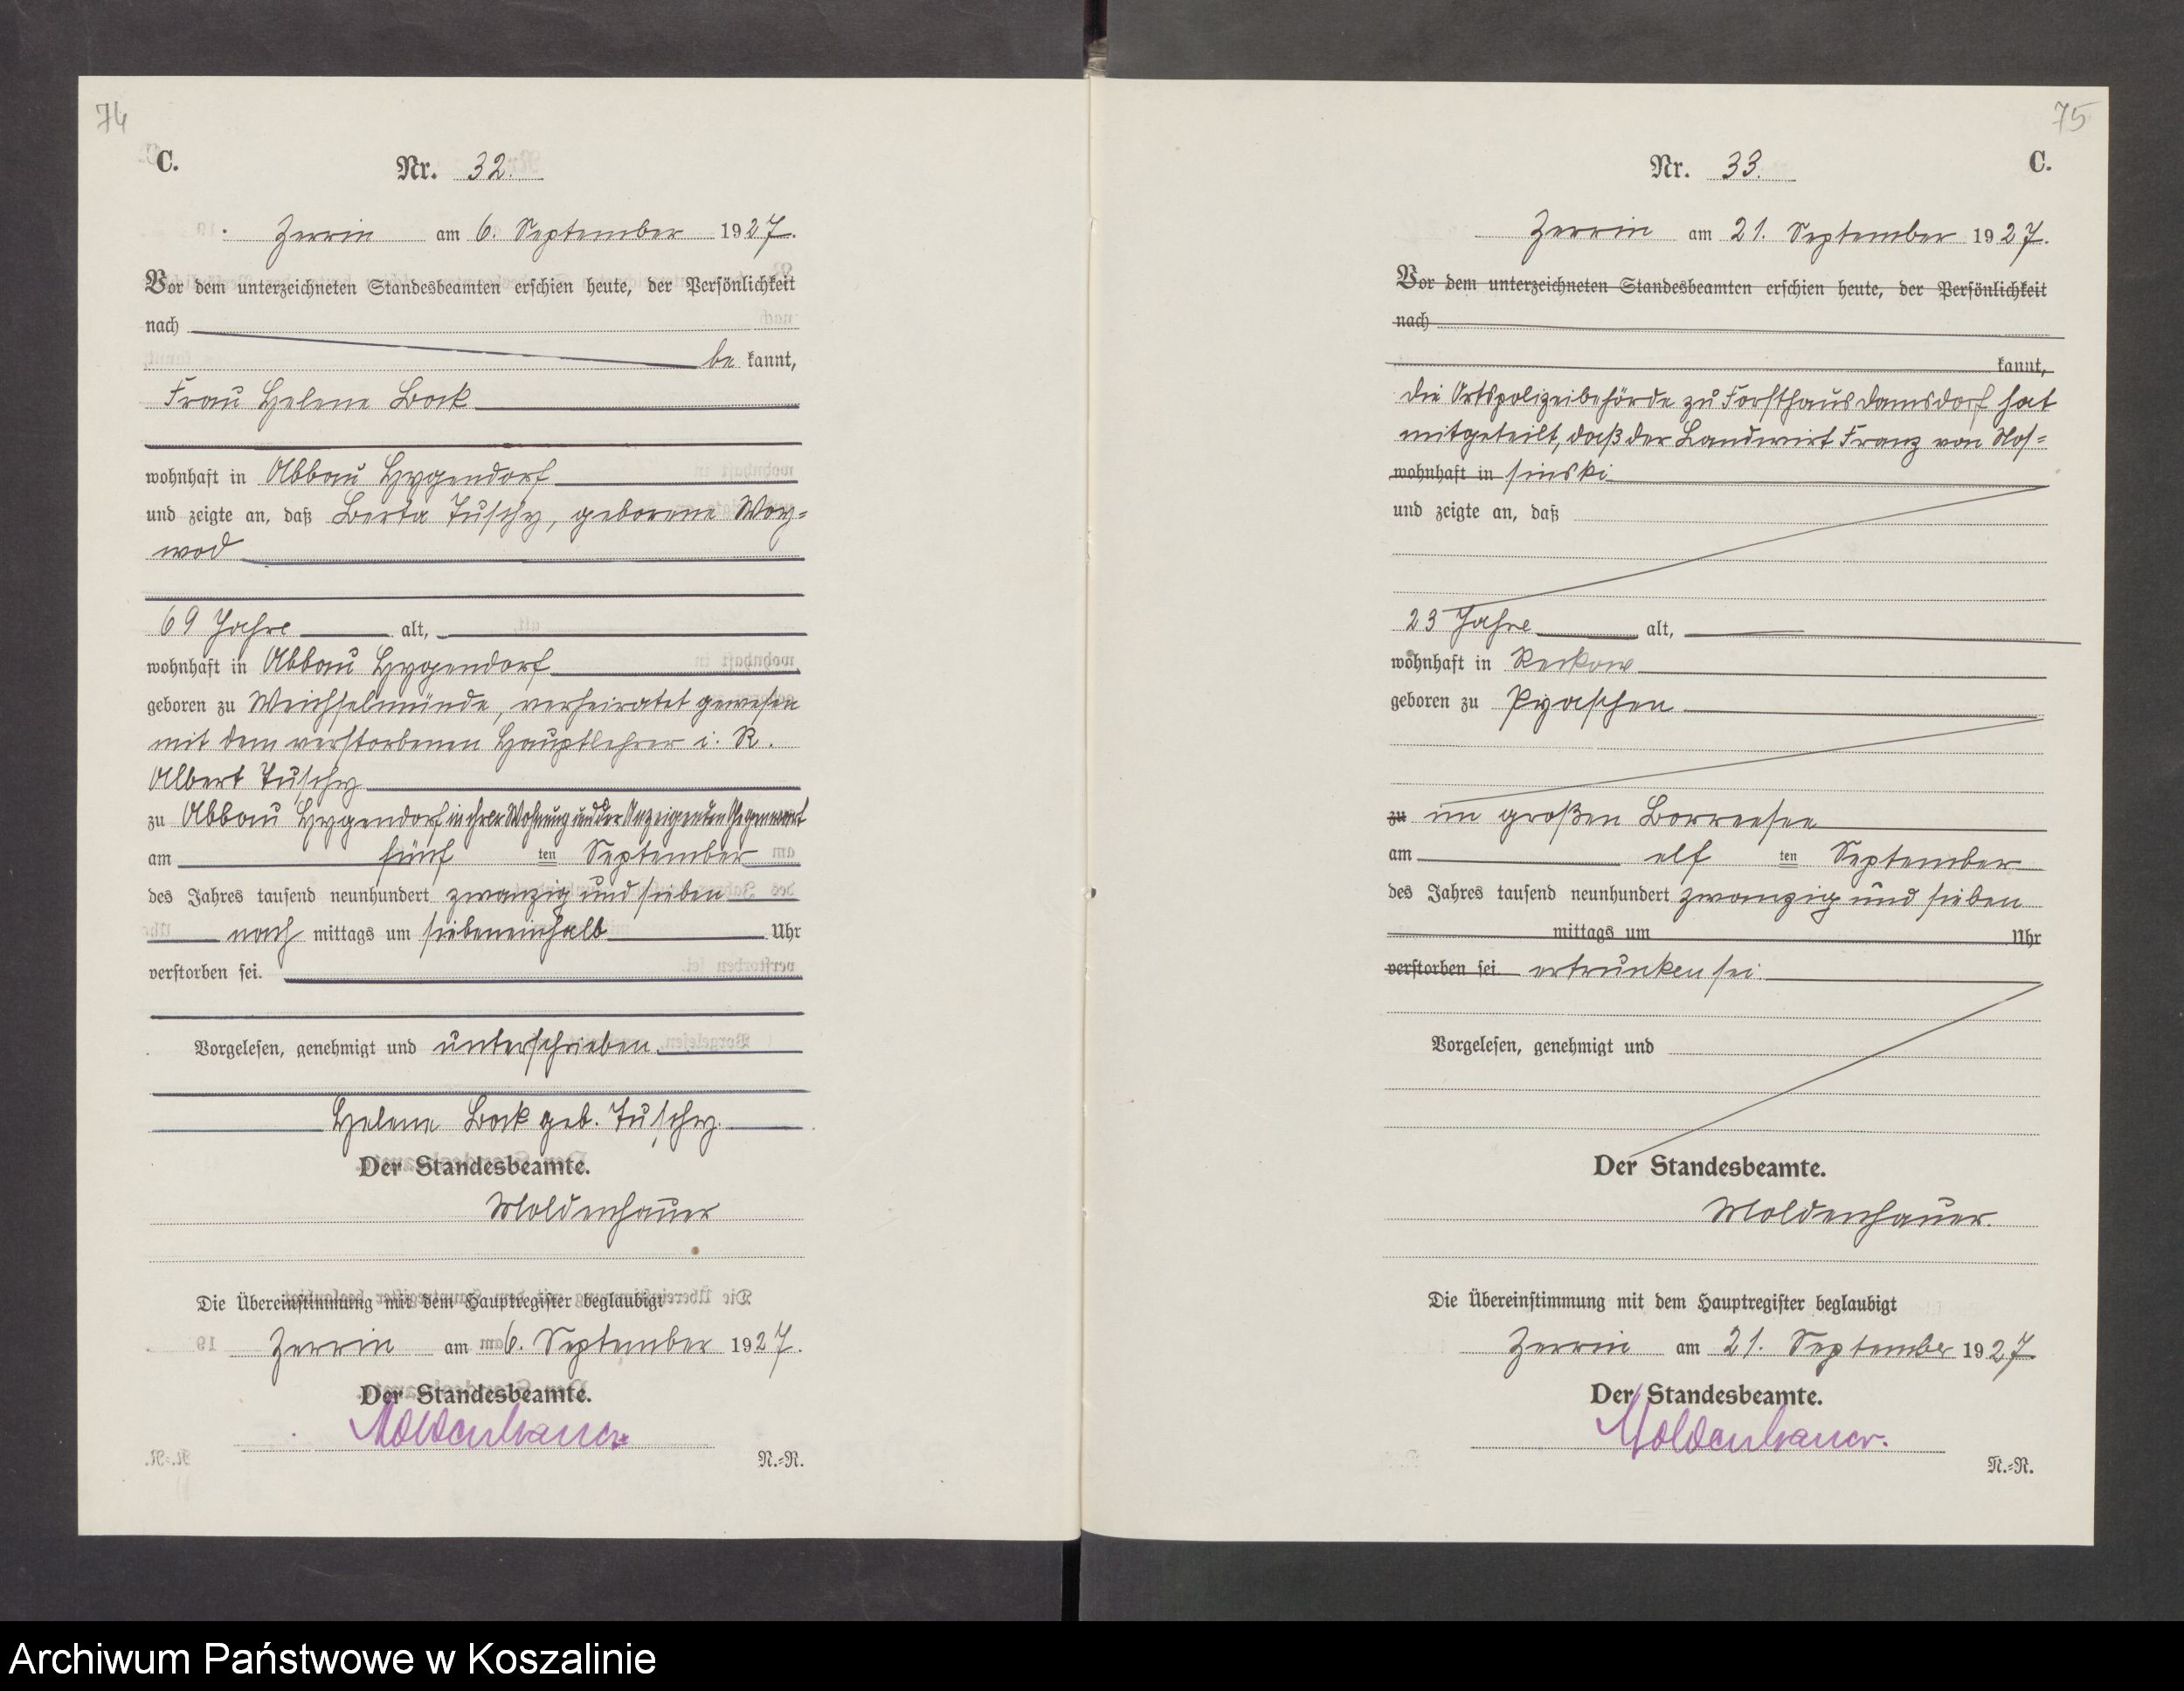 74
C.
Nr. 32.
Zerrin am 6. September 1927.
Vor dem unterzeichneten Standesbeamten erschien heute, der Persönlichkeit
nach
be kannt,
Frau Helene Bock
wohnhaft in Abbau Hygendorf
und zeigte an, daß Berta Tuschy, geborene Woy=
wod
69 Jahre alt,
wohnhaft in Abbau Hygendorf
geboren zu Weichselmünde, verheiratet gewesen
mit dem verstorbenen Hauptlehrer i. R.
Albert Tuschy
zu Abbau Hygendorf in ihrer Wohnung in der Anzeigenden Gegenwart
am fünf ten September
des Jahres tausend neunhundert zwanzig und sieben
nach mittags um siebeneinhalb Uhr
verstorben sei.
Vorgelesen, genehmigt und unterschrieben.
Helene Bock geb. Tuschy.
Der Standesbeamte.
Moldenhauer
Die Übereinstimmung mit dem Hauptregister beglaubigt
Zerrin am 6. September 1927.
Der Standesbeamte.
Moldenhauer
N.=R.
75
Nr. 33. C.
Zerrin am 21. September 1927.
Vor dem unterzeichneten Standesbeamten erschien heute, der Persönlichkeit
nach
kannt,
die Ortspolizeibehörde zu Forsthaus Damsdorf hat
mitgeteilt, daß der Landwirt Franz von
wohnhaft in sinski
und zeigte an, daß
23 Jahre alt,
wohnhaft in Reckow
geboren zu Pyaschen
zu im großen Borreesee
am elf ten September
des Jahres tausend neunhundert zwanzig und sieben
mittags um Uhr
verstorben sei ertrunken sei.
Vorgelesen, genehmigt und
Der Standesbeamte.
Moldenhauer.
Die Übereinstimmung mit dem Hauptregister beglaubigt
Zerrin am 21. September 1927.
Der Standesbeamte.
Moldenhauer.
N.=R.
Archiwum Państwowe w Koszalinie